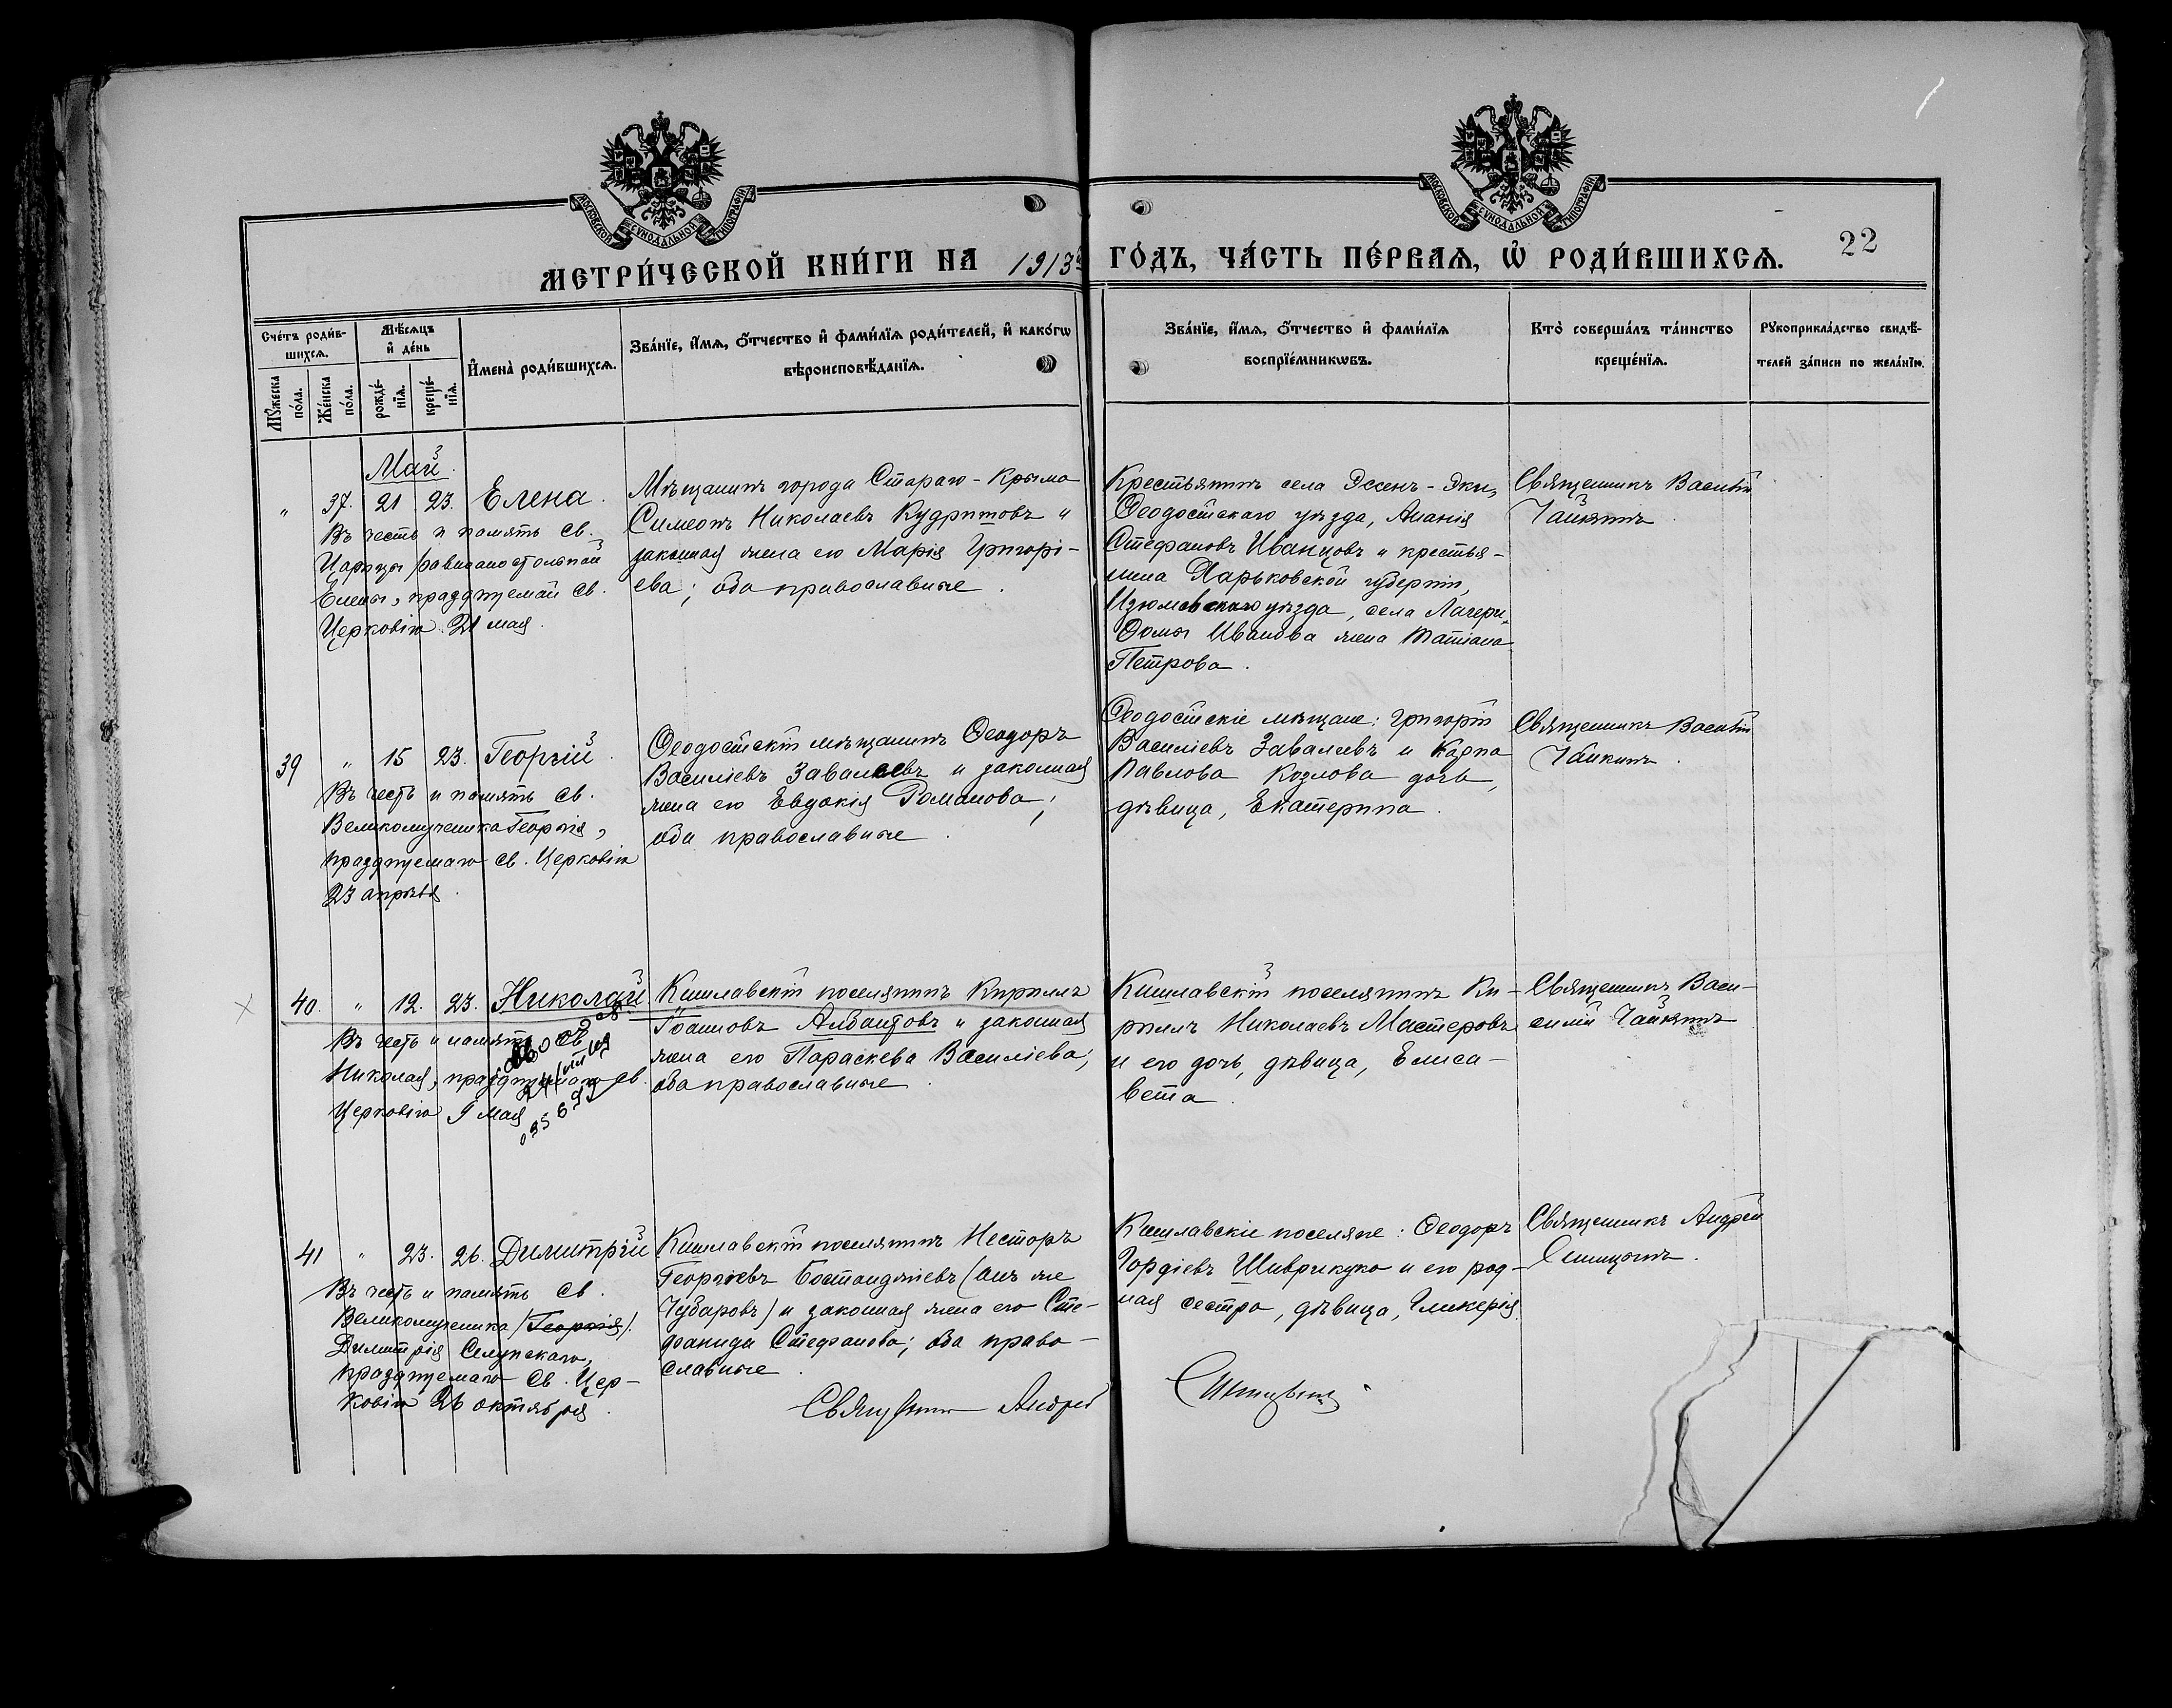 МОСКОВСКОЙ СУНОДАЛЬНОЙ ТИПОГРАФІИ
МОСКОВСКОЙ СУНОДАЛЬНОЙ ТИПОГРАФІИ
МЕТРИ́ЧЕСКОЙ КНИ́ГИ НА 1913й ГО́ДЪ, ЧА́СТЬ ПЕ́РВАѦ, Ѡ҆ РОДИ́ВШИХСѦ. 22
Сче́тъ роди́в-
шихсѧ.
Мꙋ́жеска по́ла.
Же́нска по́ла.
Мѣ́сѧцъ
и҆ де́нь
рожде́-
нїѧ.
креще́-
нїѧ.
И҆мена̀ роди́вшихсѧ.
Зва́нїе, и҆́мѧ, ѻ҆́тчество и҆ фами́лїѧ роди́телей, и҆ како́гѡ
вѣроисповѣ́данїѧ.
Зва́нїе, и҆́мѧ, ѻ҆́тчество и҆ фами́лїѧ
воспрїе́мникѡвъ.
Кто̀ соверша́лъ та́инство
креще́нїѧ.
Рꙋкоприкла́дство свидѣ́-
телей за́писи по жела́нїю.
Май.
" 37. 21 23. Елена.
Въ честь и память св.
Царицы равноапостольной
Елены, празднуемой св.
Церковію 21 мая.
Мѣщанинъ города Стараго-Крыма
Симеонъ Николаевъ Кудритовъ и
законная жена его Марія Григорі-
ева; оба православные.
Крестьянинъ села Эссенъ-Эки,
Ѳеодосійскаго уѣзда, Ананія
Стефановъ Иванцовъ и крестья-
нина Харьковской губерніи,
Изюмовскаго уѣзда, села Лагери,
Ѳомы Иванова жена Татіана
Петрова.
Священникъ Василій
Чайкинъ.
39 " 15 23. Георгій.
Въ честь и память св.
Великомученика Георгія,
празднуемаго св. Церковію
23 апрѣля.
Ѳеодосійскій мѣщанинъ Ѳеодоръ
Василіевъ Завалеевъ и законная
жена его Евдокія Романова;
оба православные.
Ѳеодосійскіе мѣщане: Григорій
Василіевъ Завалеевъ и Карпа
Павлова Козлова дочь,
дѣвица, Екатерина.
Священникъ Василій
Чайкинъ.
40. " 12. 23. Николай
Въ честь и память св.
Николая, празднуемаго св.
Церковію 9 мая
Кишлавскій поселянинъ Кириллъ
Іоанновъ Албантовъ и законная
жена его Параскева Василіева;
оба православные.
Кишлавскій поселянинъ Ки-
риллъ Николаевъ Мастеровъ
и его дочь, дѣвица, Елиса-
вета.
Священникъ Васи-
силій Чайкинъ
41 " 23. 26. Димитрій
Въ честь и память св.
Великомученика (Георгія).
Димитрія Селунскаго,
празднуемаго св. Цер-
ковію 26 октября.
Кишлавскій поселянинъ Несторъ
Георгіевъ Бостанджіевъ (онъ же
Чубаровъ) и законная жена его Сте-
фанида Стефанова; оба право-
славные.
Кишлавскіе поселяне: Ѳеодоръ
Гордіевъ Шиврикуко и его род-
ная сестра, дѣвица, Гликерія.
Священникъ Андрей
Синицынъ.
Священникъ Андрей Синицынъ